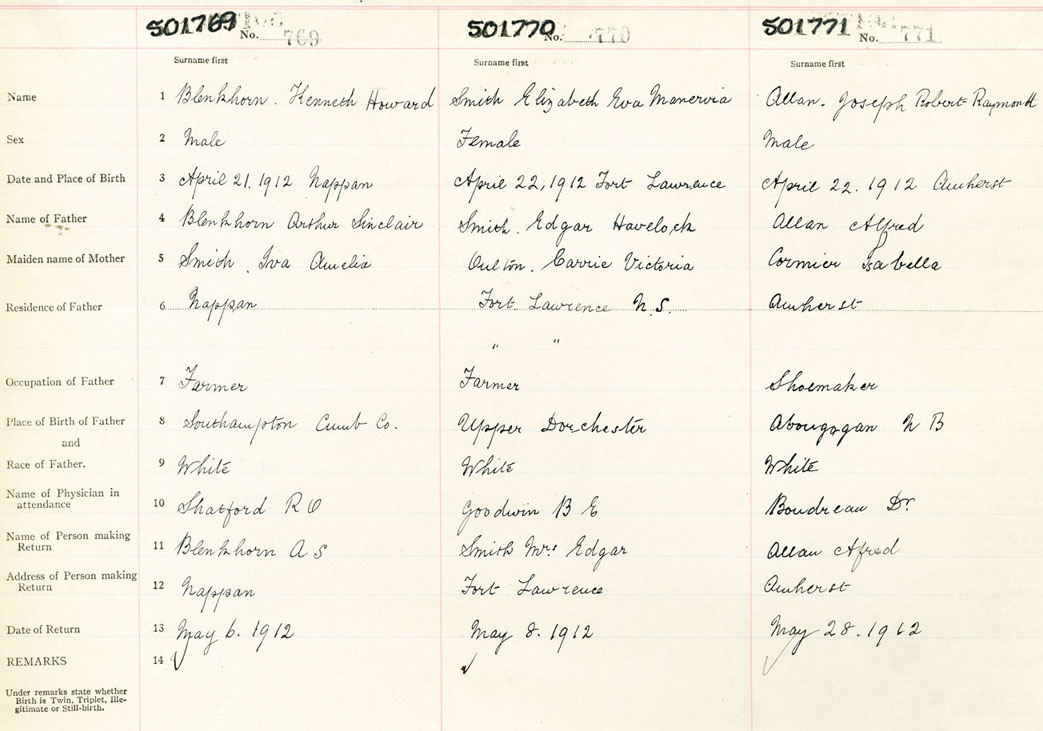 501769 No. 769 501770 No. 770 501771 No. 771
Surname first Surname first Surname first
Name 1 Blenkhorn. Kenneth Howard Smith Elizabeth Eva Manervia Allan. Joseph Robert Raymond
Sex 2 Male Female Male
Date and Place of Birth 3 April 21. 1912 Nappan April 22, 1912 Fort Lawrence April 22. 1912 Amherst
Name of Father 4 Blenkhorn Arthur Sinclair Smith. Edgar Havelock Allan Alfred
Maiden name of Mother 5 Smith, Iva Amelia Oulton. Carrie Victoria Cormier Isabella
Residence of Father 6 Nappan Fort Lawrence N.S. Amherst
" "
Occupation of Father 7 Farmer Farmer Shoemaker
Place of Birth of Father 8 Southampton Cumb Co. Upper Dorchester Abougogan N B
and
Race of Father. 9 White White White
Name of Physician in
attendance 10 Shatford R O Goodwin B E Boudreau Dr.
Name of Person making
Return 11 Blenkhorn A S Smith Mrs Edgar Allan Alfred
Address of Person making
Return 12 Nappan Fort Lawrence Amherst
Date of Return 13 May 6. 1912 May 8. 1912 May 28. 1912
REMARKS 14 ✓ ✓ ✓
Under remarks state whether
Birth is Twin, Triplet, Ille-
gitimate or Still-birth.